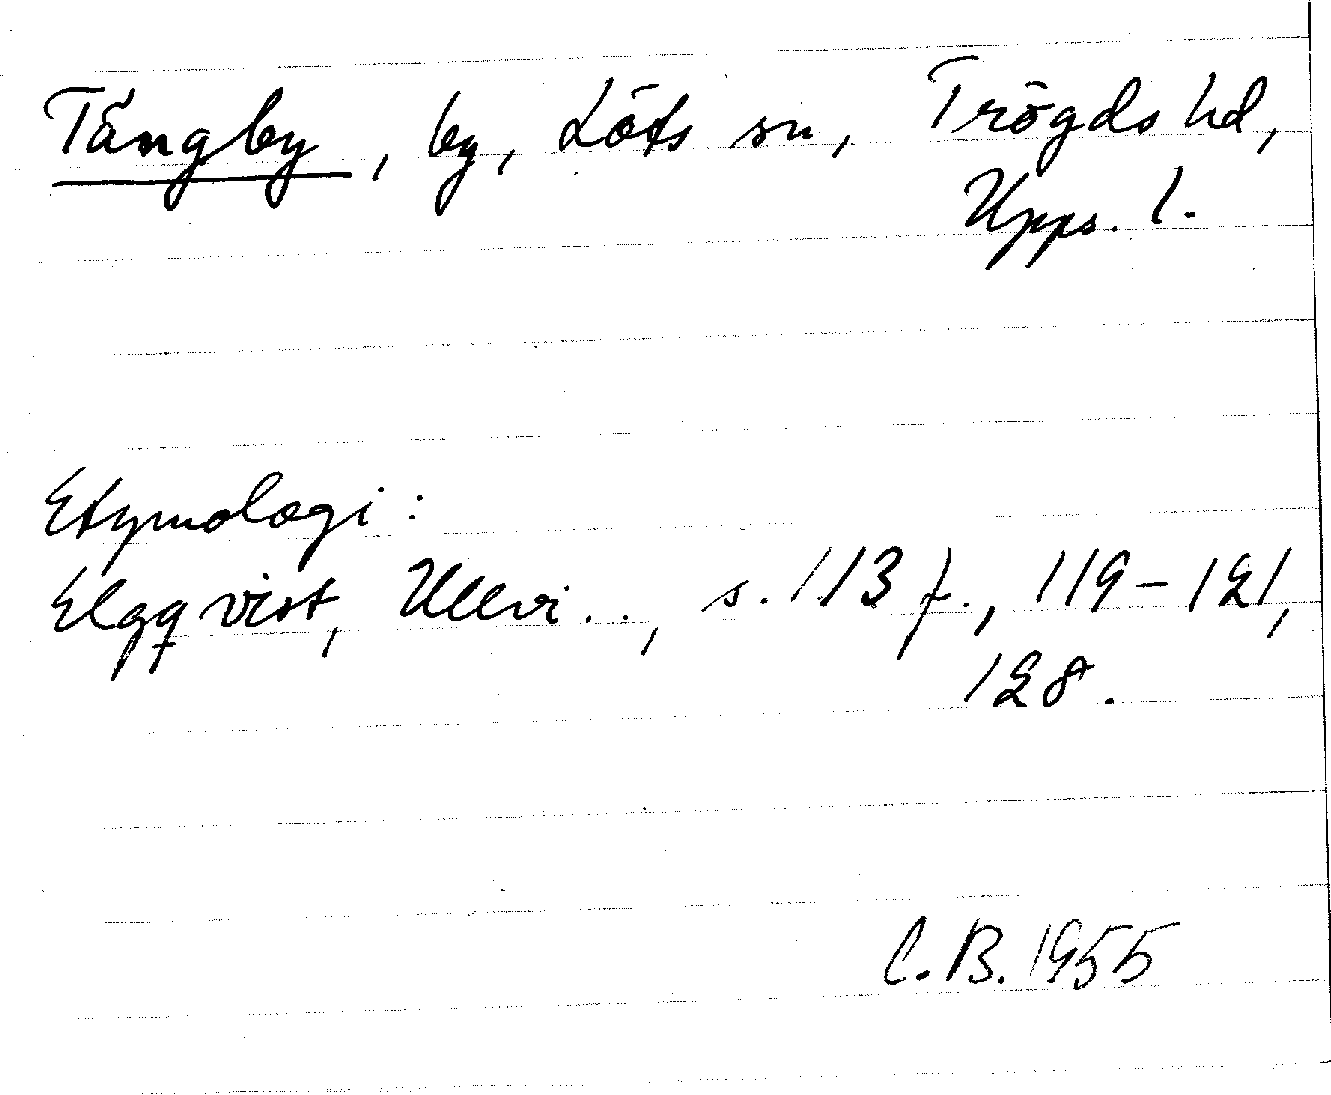 Tängby, by, Löts sn, Trögds hd,
Upps. l.
Etymologi:
Elgqvist, Ullvi..., s. 113 f., 119-121,
128.
C.B. 1955